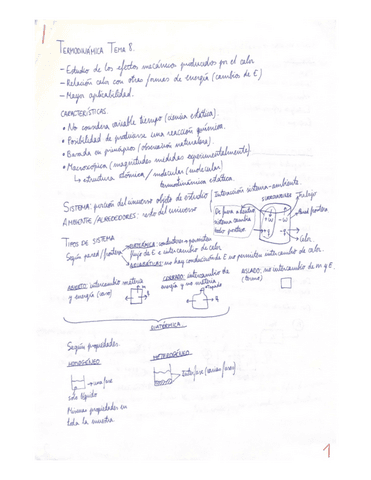 TERMODINÁMICA TEMA 8.
- Estudio de los efectos mecánicos producidos por el calor
- Relación calor con otras formas de energía (cambios de E)
- Mayor aplicabilidad.
CARACTERÍSTICAS.
• No considera variable tiempo (ciencia estática).
• Posibilidad de producirse una reacción química.
• Basada en principios (observación naturaleza).
• Macroscópica (magnitudes medidas experimentalmente)
↳ estructura atómica / molecular (molecular)
termodinámica estática.
SISTEMA: porción del universo objeto de estudio
AMBIENTE / ALREDEDORES: resto del universo
Interacción sistema-ambiente.
De fuera a dentro
sistema cambia
todo positivo.
ALREDEDORES
Trabajo
+W
-W
+q
-q
Pared frontera
Calor
TIPOS DE SISTEMA
Según pared/frontera
DIATÉRMICA: conductora → permiten
flujo de E e intercambio de calor
ADIABÁTICAS: no hay conducción de E no permiten intercambio de calor.
ABIERTO: intercambio materia
y energía (vaso)
CERRADO: intercambio de
energía y no materia
tapado
AISLADO: no intercambio de m y E.
(termo)
DIATÉRMICA
Según propiedades
HOMOGÉNEO
solo líquido
Mismas propiedades en
toda la muestra
HETEROGÉNEO
Interfase (varias fases)
1